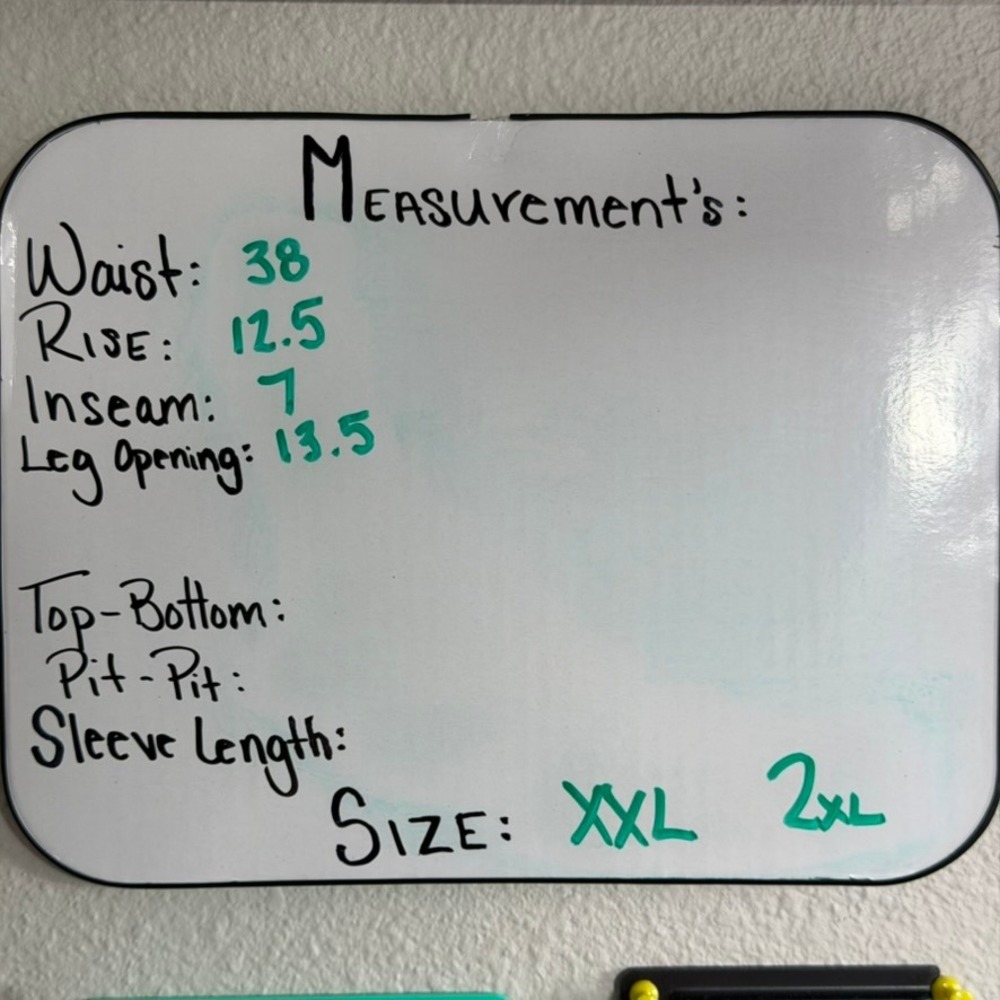 MEASurement's:
Waist: 38
RISE: 12.5
Inseam: 7
Leg Opening: 13.5
Top-Bottom:
Pit-Pit:
Sleeve Length:
SIZE: XXL 2XL